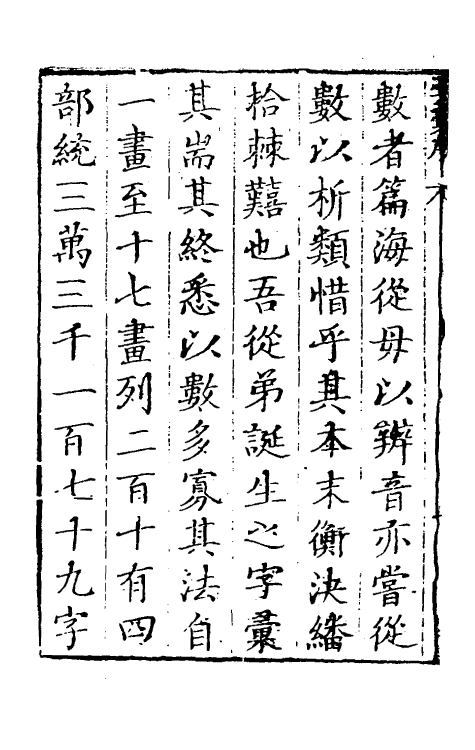 數者篇海從母以辨音亦嘗從
數以析類惜乎其本末衡決繙
拾棘囏也吾從弟誕生之字彙
其耑其終悉以數多寡其法自
一畫至十七畫列二百十有四
部統三萬三千一百七十九字